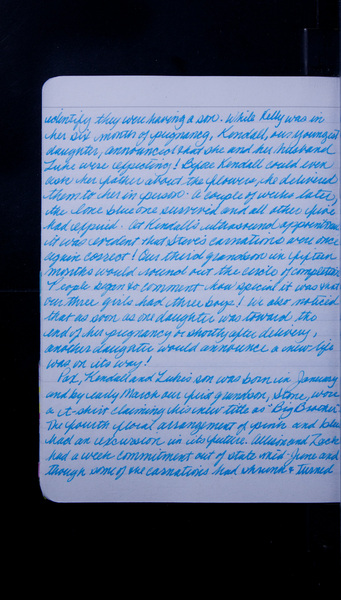 identify they were having a son. While Kelly was in
her six month of pregnancy, Kendall, our youngest
daughter, announced that she and her husband
Luke were expecting! Before Kendall could even
ask her father about the flowers, he delivered
them to her in person. A couple of weeks later,
the lone blue one survived and all other pink
had expired. At Kendall's ultrasound appointment
it was evident that Steve's carnations were once
again correct! Our third grandson in fifteen
months would round out the circle of
People began to comment how special it was that
our three girls had three boys! We also noticed
that as soon as one daughter was toward the
end of her pregnancy or shortly after delivery,
another daughter would announce a new life
was on its way!
Kendall and Luke's son was born in January
and by early March our first grandson, Stone, wore
a t-shirt claiming his new title as "Big Brother".
The fourth floral arrangement of pink and blue
had an excursion in its future. and Zach
had a week commitment out of state mid-June and
though some of the carnations had shrunk & turned